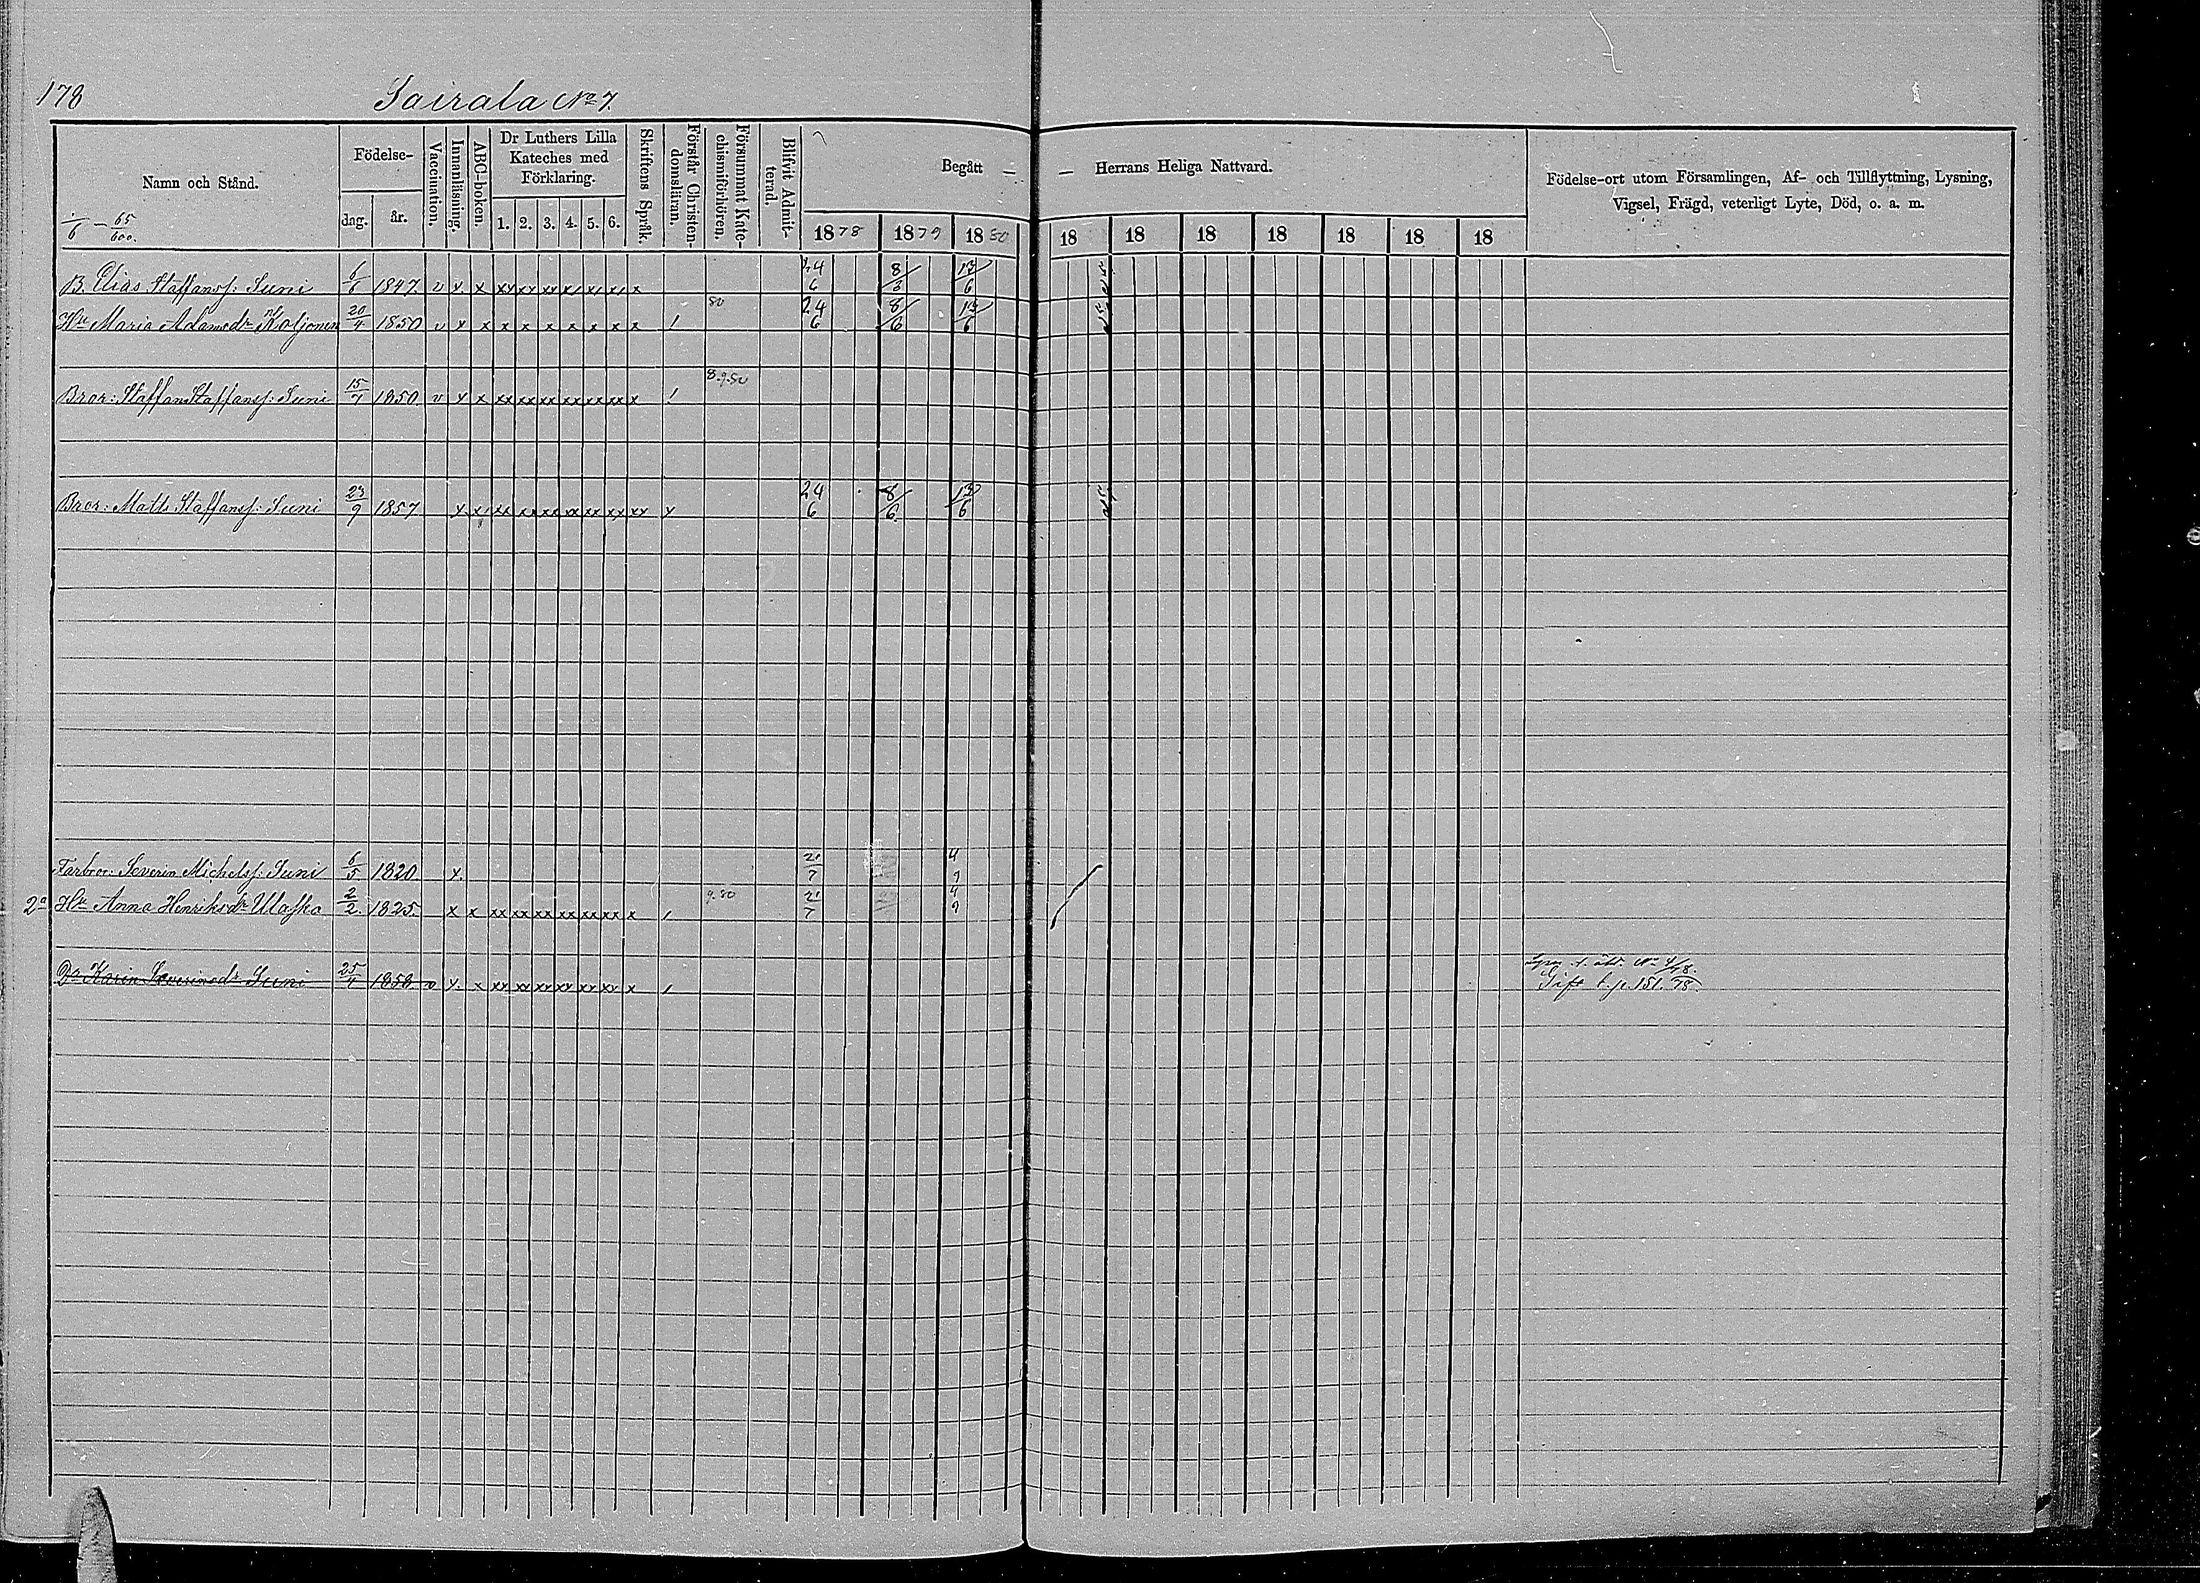 178 Sairala No 7.
Namn och Stånd.
Födelse-
dag. år.
Vaccination.
Innanläsning.
ABC-boken.
Dr Luthers Lilla Kateches med Förklaring.
1. 2. 3. 4. 5. 6.
Skriftens Språk.
Förstår Christen-domsläran.
Försummat Kate-chismiförhören.
Blifvit Admit-terad
Begått — — Herrans Heliga Nattvard.
1878 1879 1880 18 18 18 18 18 18 18
Födelse-ort utom Församlingen, Af- och Tillflyttning, Lysning,
Vigsel, Frägd, veterligt Lyte, Död, o. a. m.
65/600.
B. Elias Staffanss: Suni 1847 v x x xx xx xx x x x x 24/6 8/6 13/6
Hu Maria Adamsdr Koljonen 20/4 1850 v x x x x x x x x x 80 24/6 8/6 13/6
Bror: Staffan Staffanss: Suni 15/7 1850 v x x xx xx xx xx xx xx x 8.9.80
Bror: Matts Staffanss: Suni 23/9 1857 x x xx xx xx xx xx xx xx x 24/6 8/6 13/6
Farbror: Severin Michelss: Suni 6/5 1820 x. 21/7 4/9
2a Hu Anna Henriksdr Ulaska 2/2 1825. x x xx xx xx xx xx xx x 9.80 21/7 4/9
Dr Karin Severinsdr Suni 25/4 1858 v x. x xx xx xx xx xx xx x
No 4/78.
Gift t. p. 151. 78.